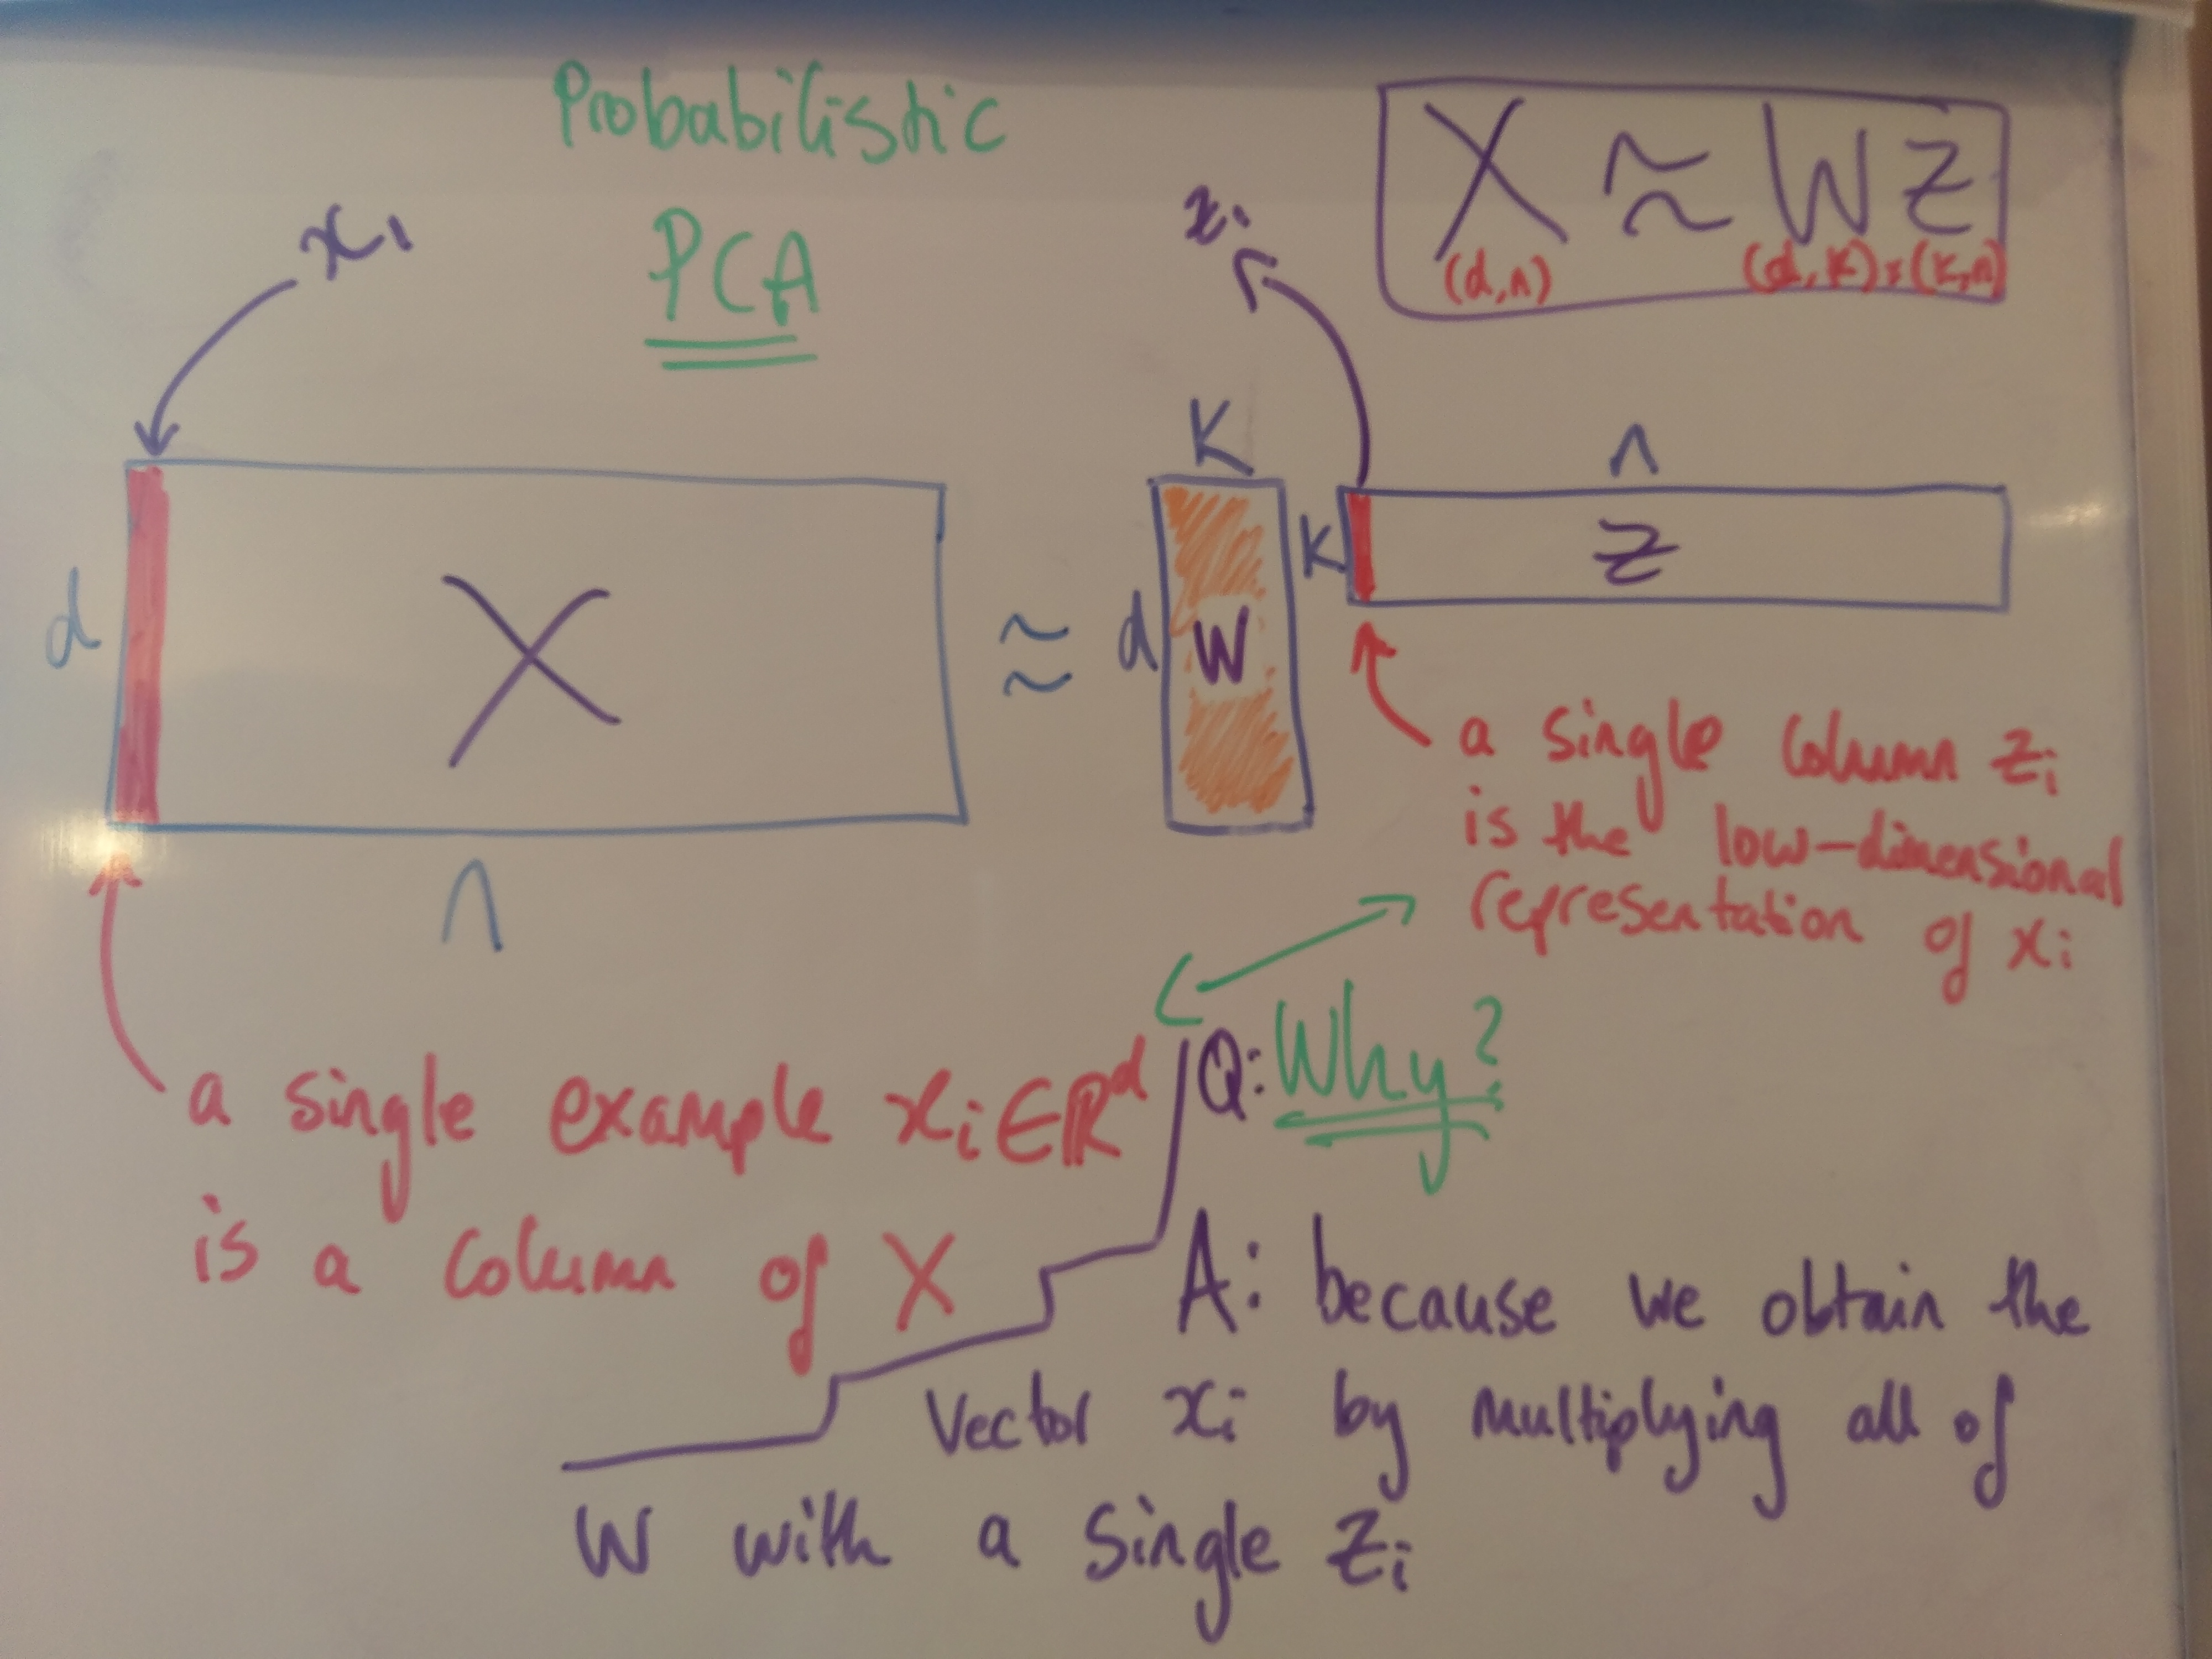 Probabilistic
PCA
X ≈ W Z
(d,n) (d,K)×(K,n)
xi
zi
K
n
d
X
≈
d
W
K
Z
n
a single column zi
is the low-dimensional
representation of xi
a single example xi∈ℝᵈ
is a column of X
Q: Why?
A: because we obtain the
vector xi by multiplying all of
W with a single zi